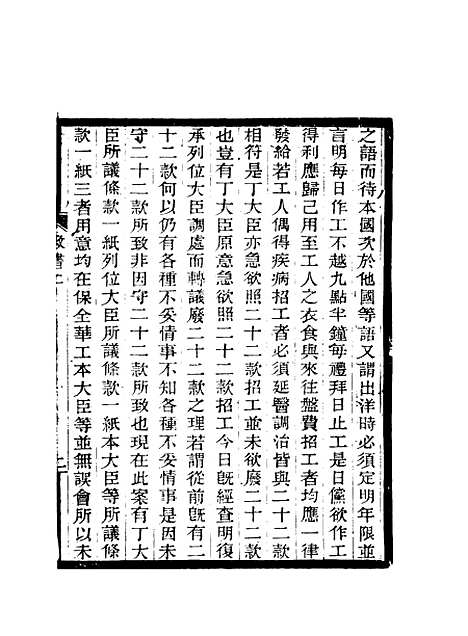 之語而待本國次於他國等語又謂出洋時必須定明年限並
言明每日作工不越九點半鐘每禮拜日止工是日儻欲作工
得利應歸己用至工人之衣食與來往盤費招工者均應一律
發給若工人偶得疾病招工者必須延醫調治皆與二十二款
相符是丁大臣亦急欲照二十二款招工並未欲廢二十二款
也豈有丁大臣原意急欲照二十二款招工今日旣經查明復
承列位大臣調處而轉議廢二十二款之理若謂從前旣有二
十二款何以仍有各種不妥情事不知各種不妥情事是因未
守二十二款所致非因守二十二款所致也現在此案有丁大
臣所議條款一紙列位大臣所議條款一紙本大臣等所議條
款一紙三者用意均在保全華工本大臣等並無誤會所以未